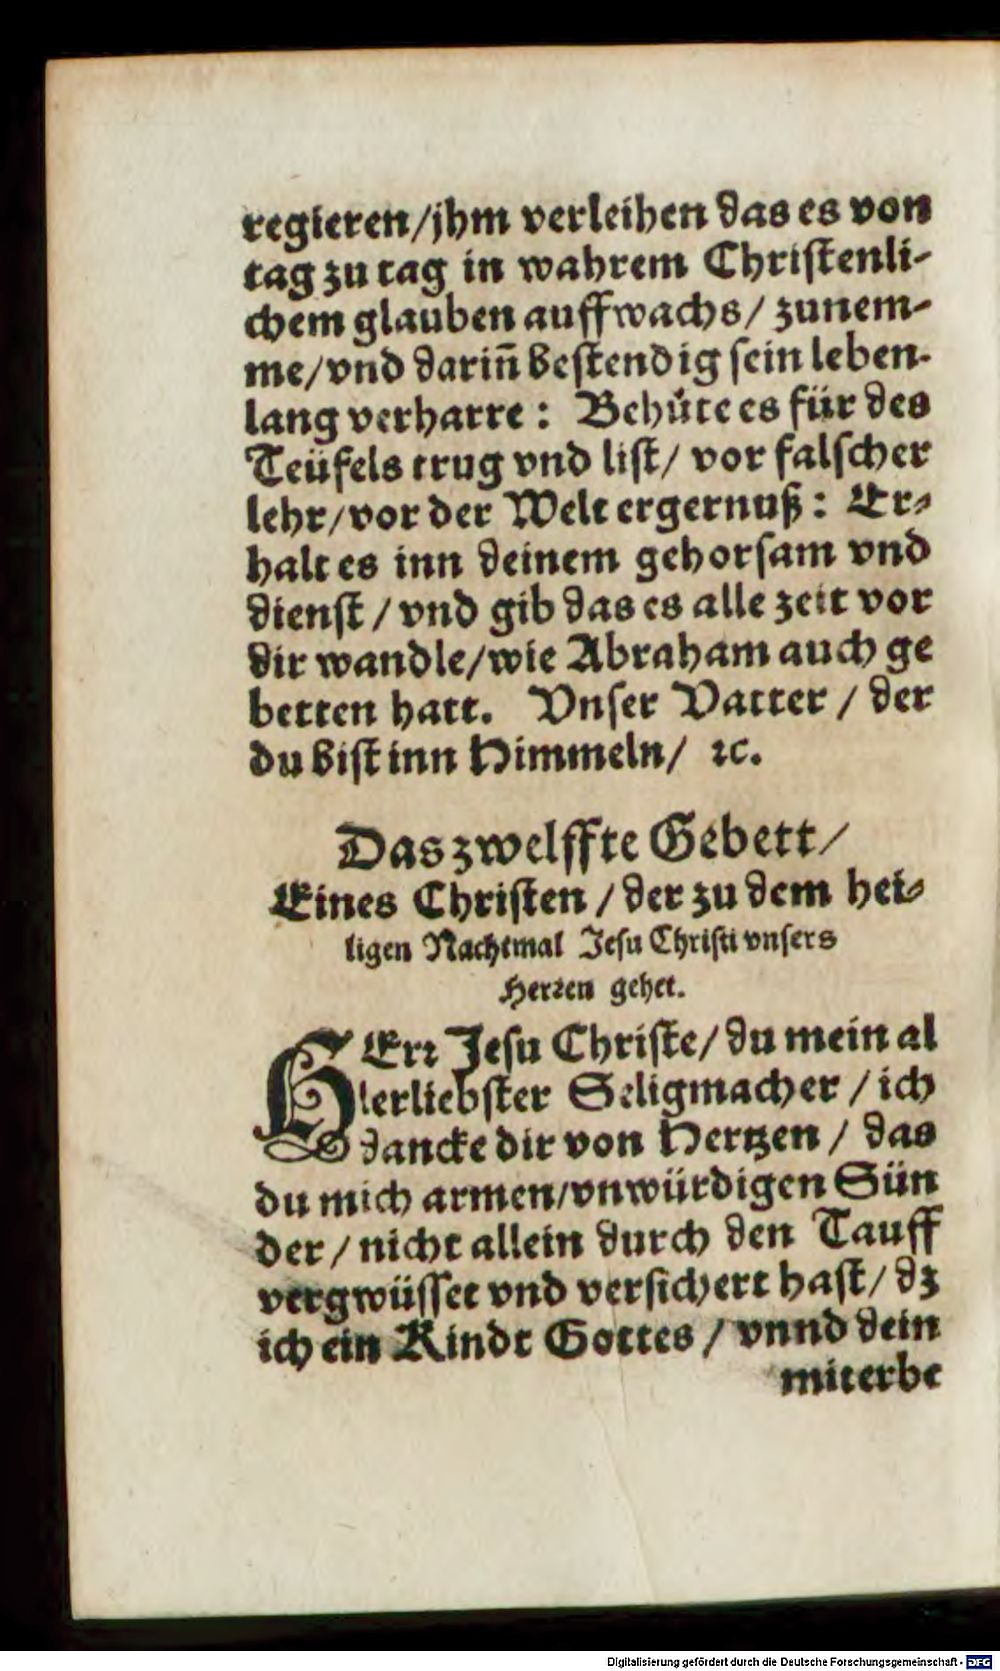 regieren/jhm verleihen das es von
tag zu tag in wahrem Christenli-
chem glauben auffwachs/ zunem-
me/vnd darin̄ bestendig sein leben-
lang verharre: Behuͤte es für des
Teüfels trug vnd list/ vor falscher
lehr/vor der Welt ergernuß: Er-
halt es inn deinem gehorsam vnd
dienst/vnd gib das es alle zeit vor
dir wandle/wie Abraham auch ge
betten hatt. Vnser Vatter/ der
du bist inn Himmeln/ ꝛc.
Das zwelffte Gebett/
Eines Christen/der zu dem hei-
ligen Nachtmal Jesu Christi vnsers
Herꝛen gehet.
HErꝛ Jesu Christe/du mein al
lerliebster Seligmacher/ich
dancke dir von Hertzen/ das
du mich armen/vnwürdigen Sün
der/nicht allein durch den Tauff
vergwüsset vnd versichert hast/dz
ich ein Kindt Gottes/vnnd dein
miterbe
Digitalisierung gefördert durch die Deutsche Forschungsgemeinschaft - DFG